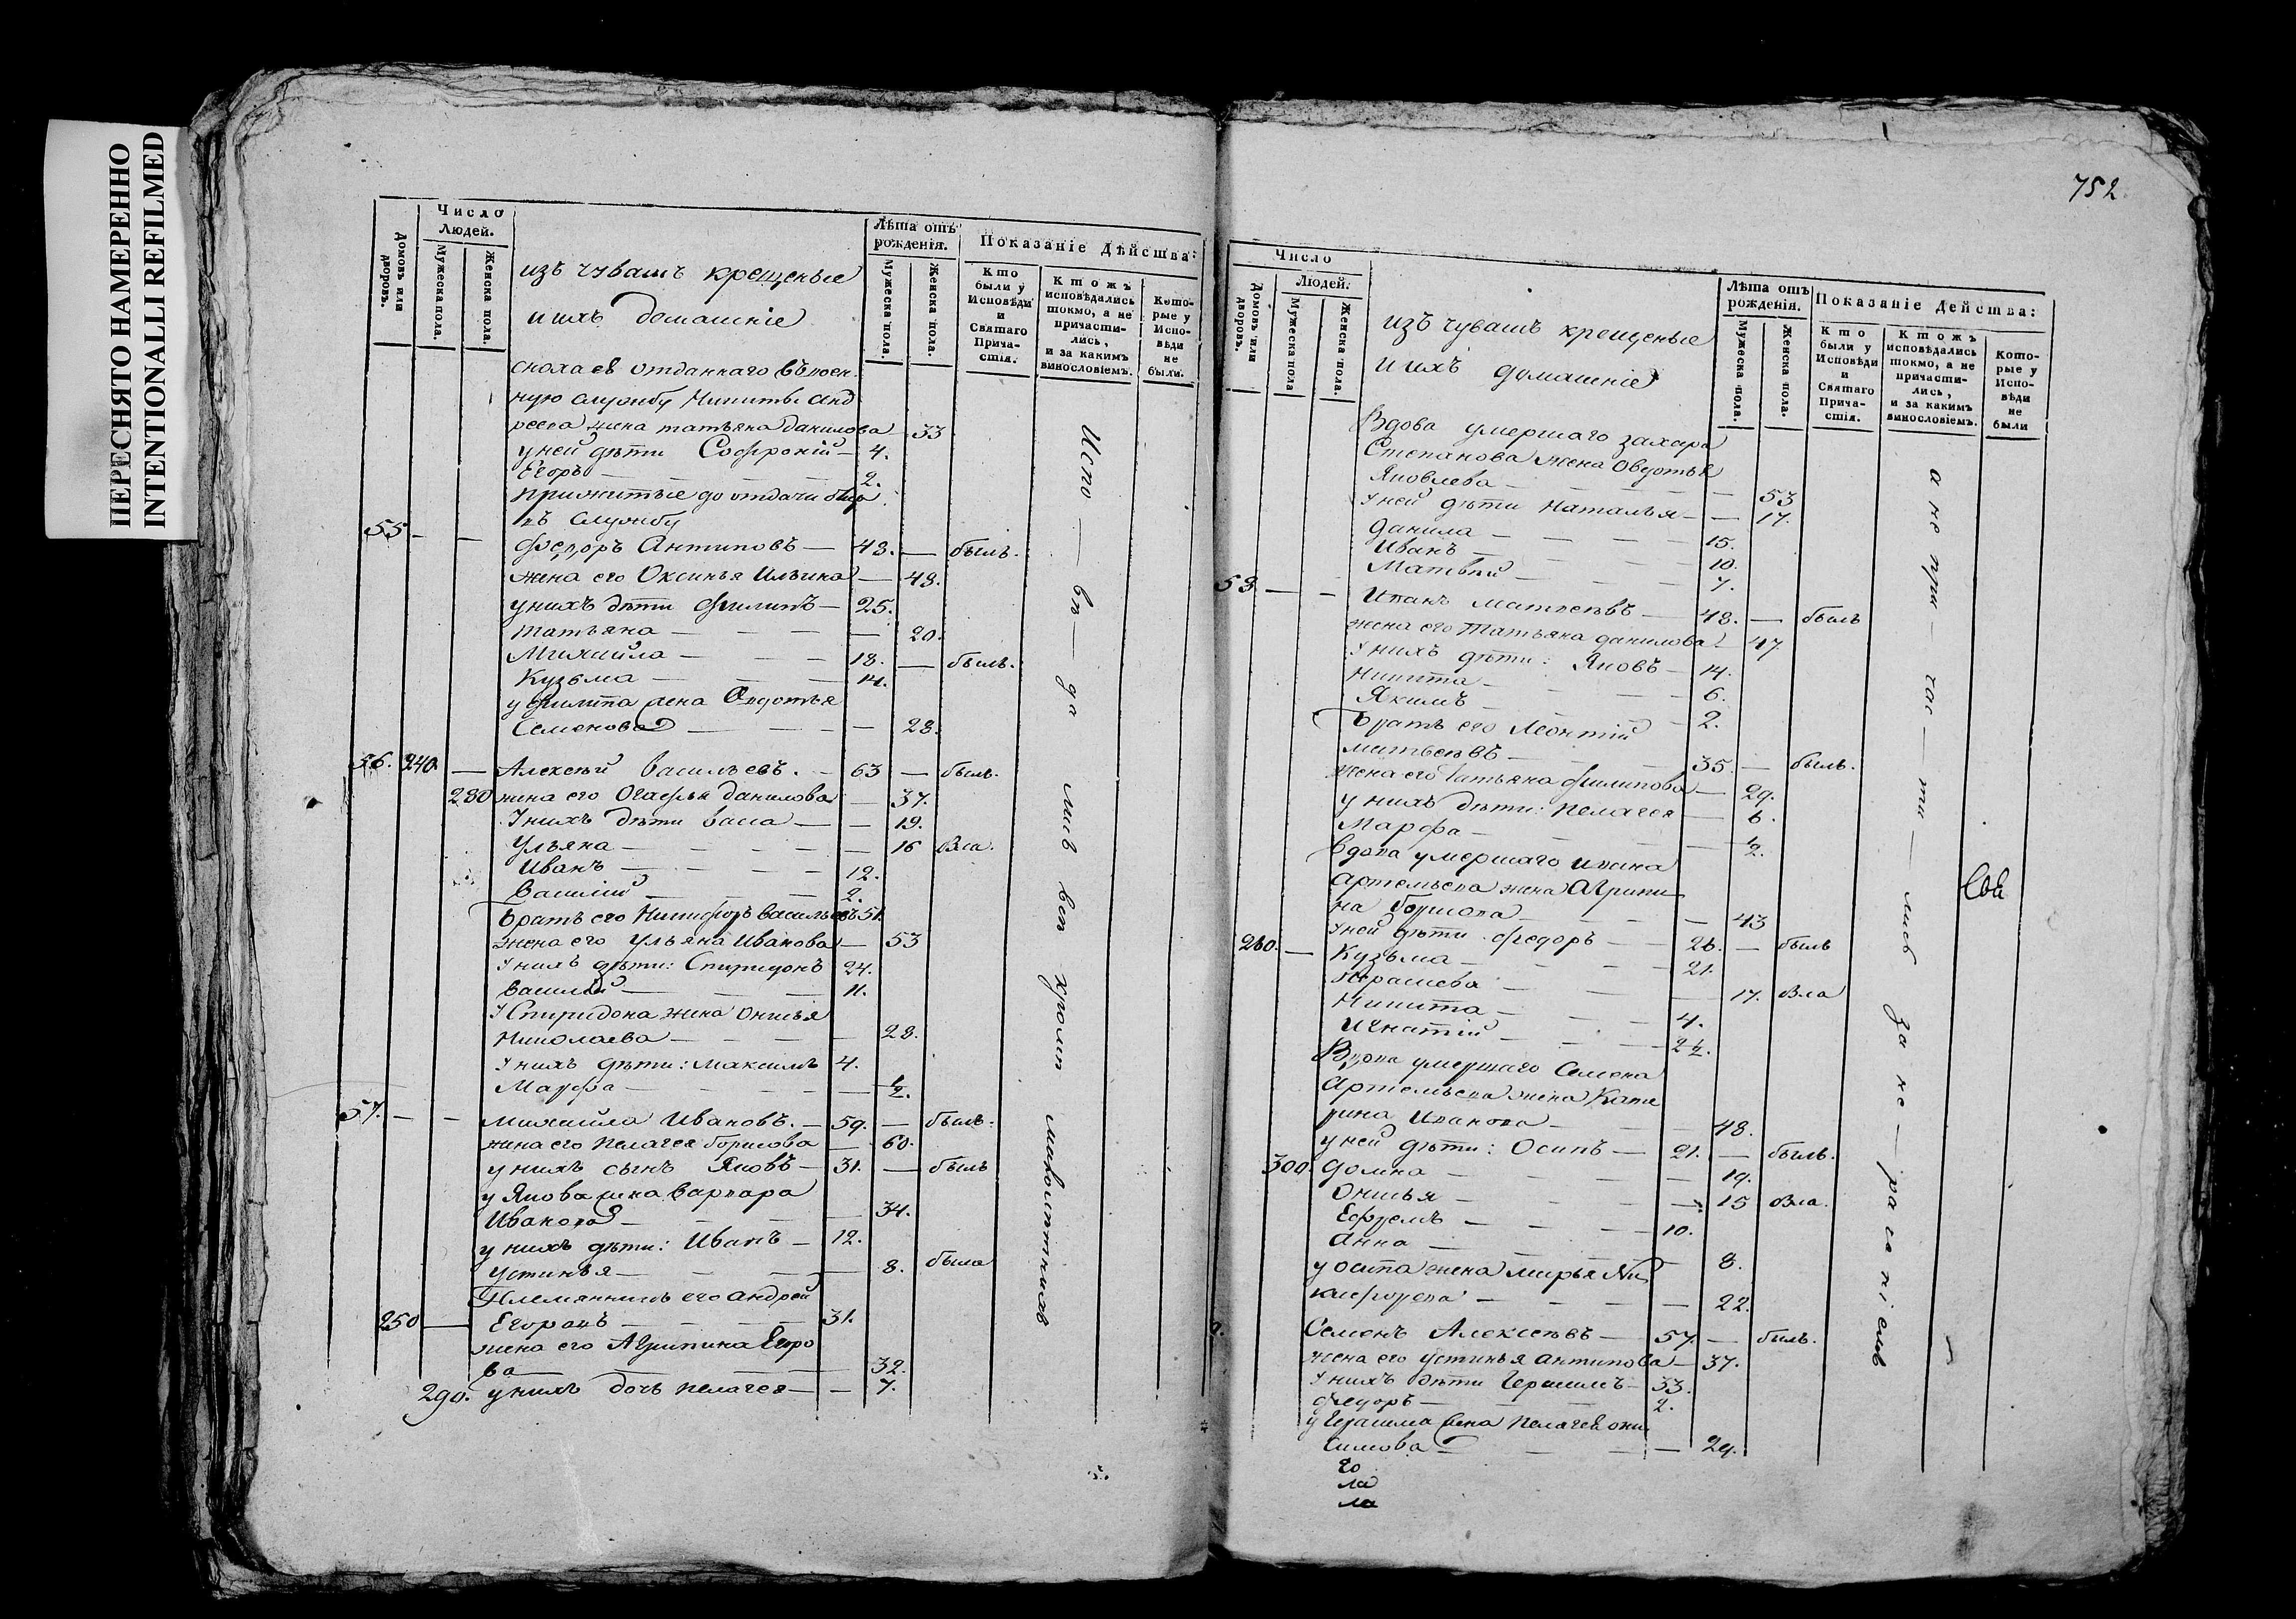 ПЕРЕСНЯТО НАМЕРЕННО
INTENTIONALLI REFILMED
Число
Людей.
Домовъ или дворовъ.
Мужеска пола.
Женска пола.
изъ чувашъ крещеные
и ихъ домашніе
Лѣта отъ рожденія.
Мужеска пола.
Женска пола.
Показаніе Дѣйства:
Кто были у Исповѣди и Святаго Причастія.
Ктожъ исповѣдались токмо, а не причастились, и за какимъ винословіемъ.
Которые у Исповѣди не были.
сноха ев отданнаго въ воен
ную службу Никиты Анд
реева жена татьяна данилова 33
у ней дѣти Софроній — 4.
Егоръ — 2.
прижитые до отдачи
въ службу
55 — — Федоръ Антиповъ — 48. — былъ.
жена его Оксинья Ильина — 48.
у нихъ дѣти Филипъ — 25.
татьяна — — — — 20.
Михаила — — — 18. — былъ.
Кузьма — — — 14.
у Филипа жена Авдотья
Семенова — — — — 28.
56. 240. — Алексѣй васильевъ. — 63 — былъ.
280 жена его Огафья данилова — 37.
У нихъ дѣти васса — — 19.
Ульяна — — — — 16 Вла.
Иванъ — — — 12.
василій — — — 2.
братъ его Никифоръ васильевъ 51.
жена его Ульяна Иванова — 53
У нихъ дѣти: Спиридонъ 24.
василій — — — 11.
У Спиридона жена Онисья
Николаева — — — — 28.
У нихъ дѣти: Максимъ 4.
Марфа — — — — ½.
57. — — Михаила Ивановъ. — 59. — былъ.
жена его Пелагея борисова — 60.
у нихъ сынъ Яковъ — 31. — былъ
у Якова жена варвара
Иванова — — — 34.
у нихъ дѣти: Иванъ — 12.
Устинья — — — — 8. была
Племянникъ его Андрей
250 — Егоровъ — — — 31.
жена его Агрипина Егоро
ва — — — 32.
290. у нихъ дочь пелагея — — 7.
Испо — вѣ — да лись вси кромѣ
752
Число
Людей.
Домовъ или дворовъ.
Мужеска пола
Женска пола.
изъ чувашъ крещеные
и ихъ домашніе
Лѣта отъ рожденія.
Мужеска пола.
Женска пола.
Показаніе Действа:
Кто были у Исповѣди и Святаго Причастія.
Ктожъ исповѣдались токмо, а не причастились, и за какимъ винословіемъ.
Которые у Исповѣди не были
Вдова умершаго захара
Степанова жена Овдотья
Яковлева — — — — 53
У ней дѣти Наталья — — 17.
данила — — — — 15.
Иванъ — — — — 10.
Матвѣй — — — 7.
58. — — Иванъ матвѣевъ — 48. — былъ
жена его татьяна данилова — 47.
У нихъ дѣти: Яковъ — 14.
Никита — — — 6.
Якимъ — — — 2.
братъ его Леонтій
матвѣевъ — 35. — былъ.
жена его татьяна филипова — 29.
у нихъ дѣти: пелагея — 6.
Марфа — — — ½.
вдова умершаго ивана
Артемьева жена Агрипи
на борисова — — 43
У ней дѣти федоръ — — 26. — былъ
260. — Кузьма — — — 21.
— — 17. Вла
Никита — — — 4.
Игнатій — — — 2½.
Вдова умершаго Семена
Артемьева жена Кате
рина Иванова — — — 48.
у ней дѣти: Осипъ — 21. — былъ.
300. домна — — — — 19.
Онисья — — — — 15 Вла.
Ефремъ — — — 10.
Анна — — — — 8.
у осипа жена марья Ни
кифорова — — — — 22.
Семенъ Алексѣевъ — 57. — былъ.
жена его устинья антипова — 37.
У нихъ дѣти Герасимъ — 33.
федоръ — — — 2.
у Герасима жена пелагея они
симова — — — — 29.
го
ла
ла
а не при — час — ти — лись за не — раченіемъ